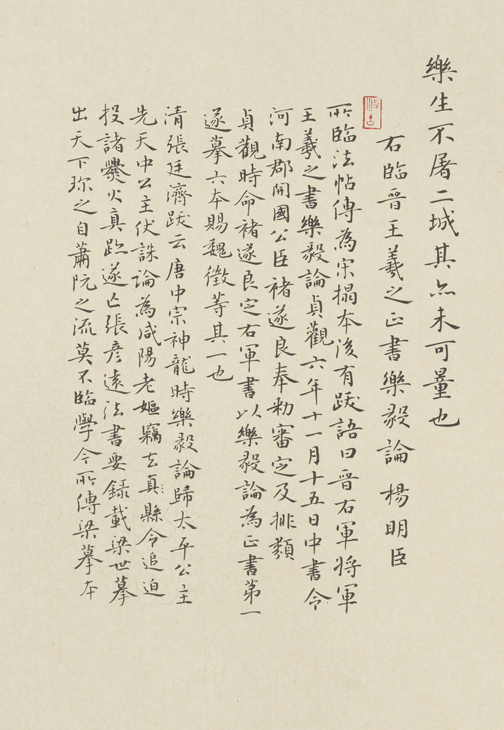 樂生不屠二城其亦未可量也
右臨晉王羲之正書樂毅論 楊明臣
所臨法帖傳為宋搨本後有跋語曰晉右軍将軍
王羲之書樂毅論貞觀六年十一月十五日中書令
河南郡開國公臣褚遂良奉勑審定及排類
貞觀時命褚遂良定右軍書以樂毅論為正書第一
遂摹六本賜魏徵等其一也
清張廷濟跋云唐中宗神龍時樂毅論歸太平公主
先天中公主伏誅論為咸陽老嫗竊去縣令追迫
投諸爨火真跡遂亡張彥遠法書要錄載梁世摹
出天下珎之自蕭阮之流莫不臨學今所傳梁摹本